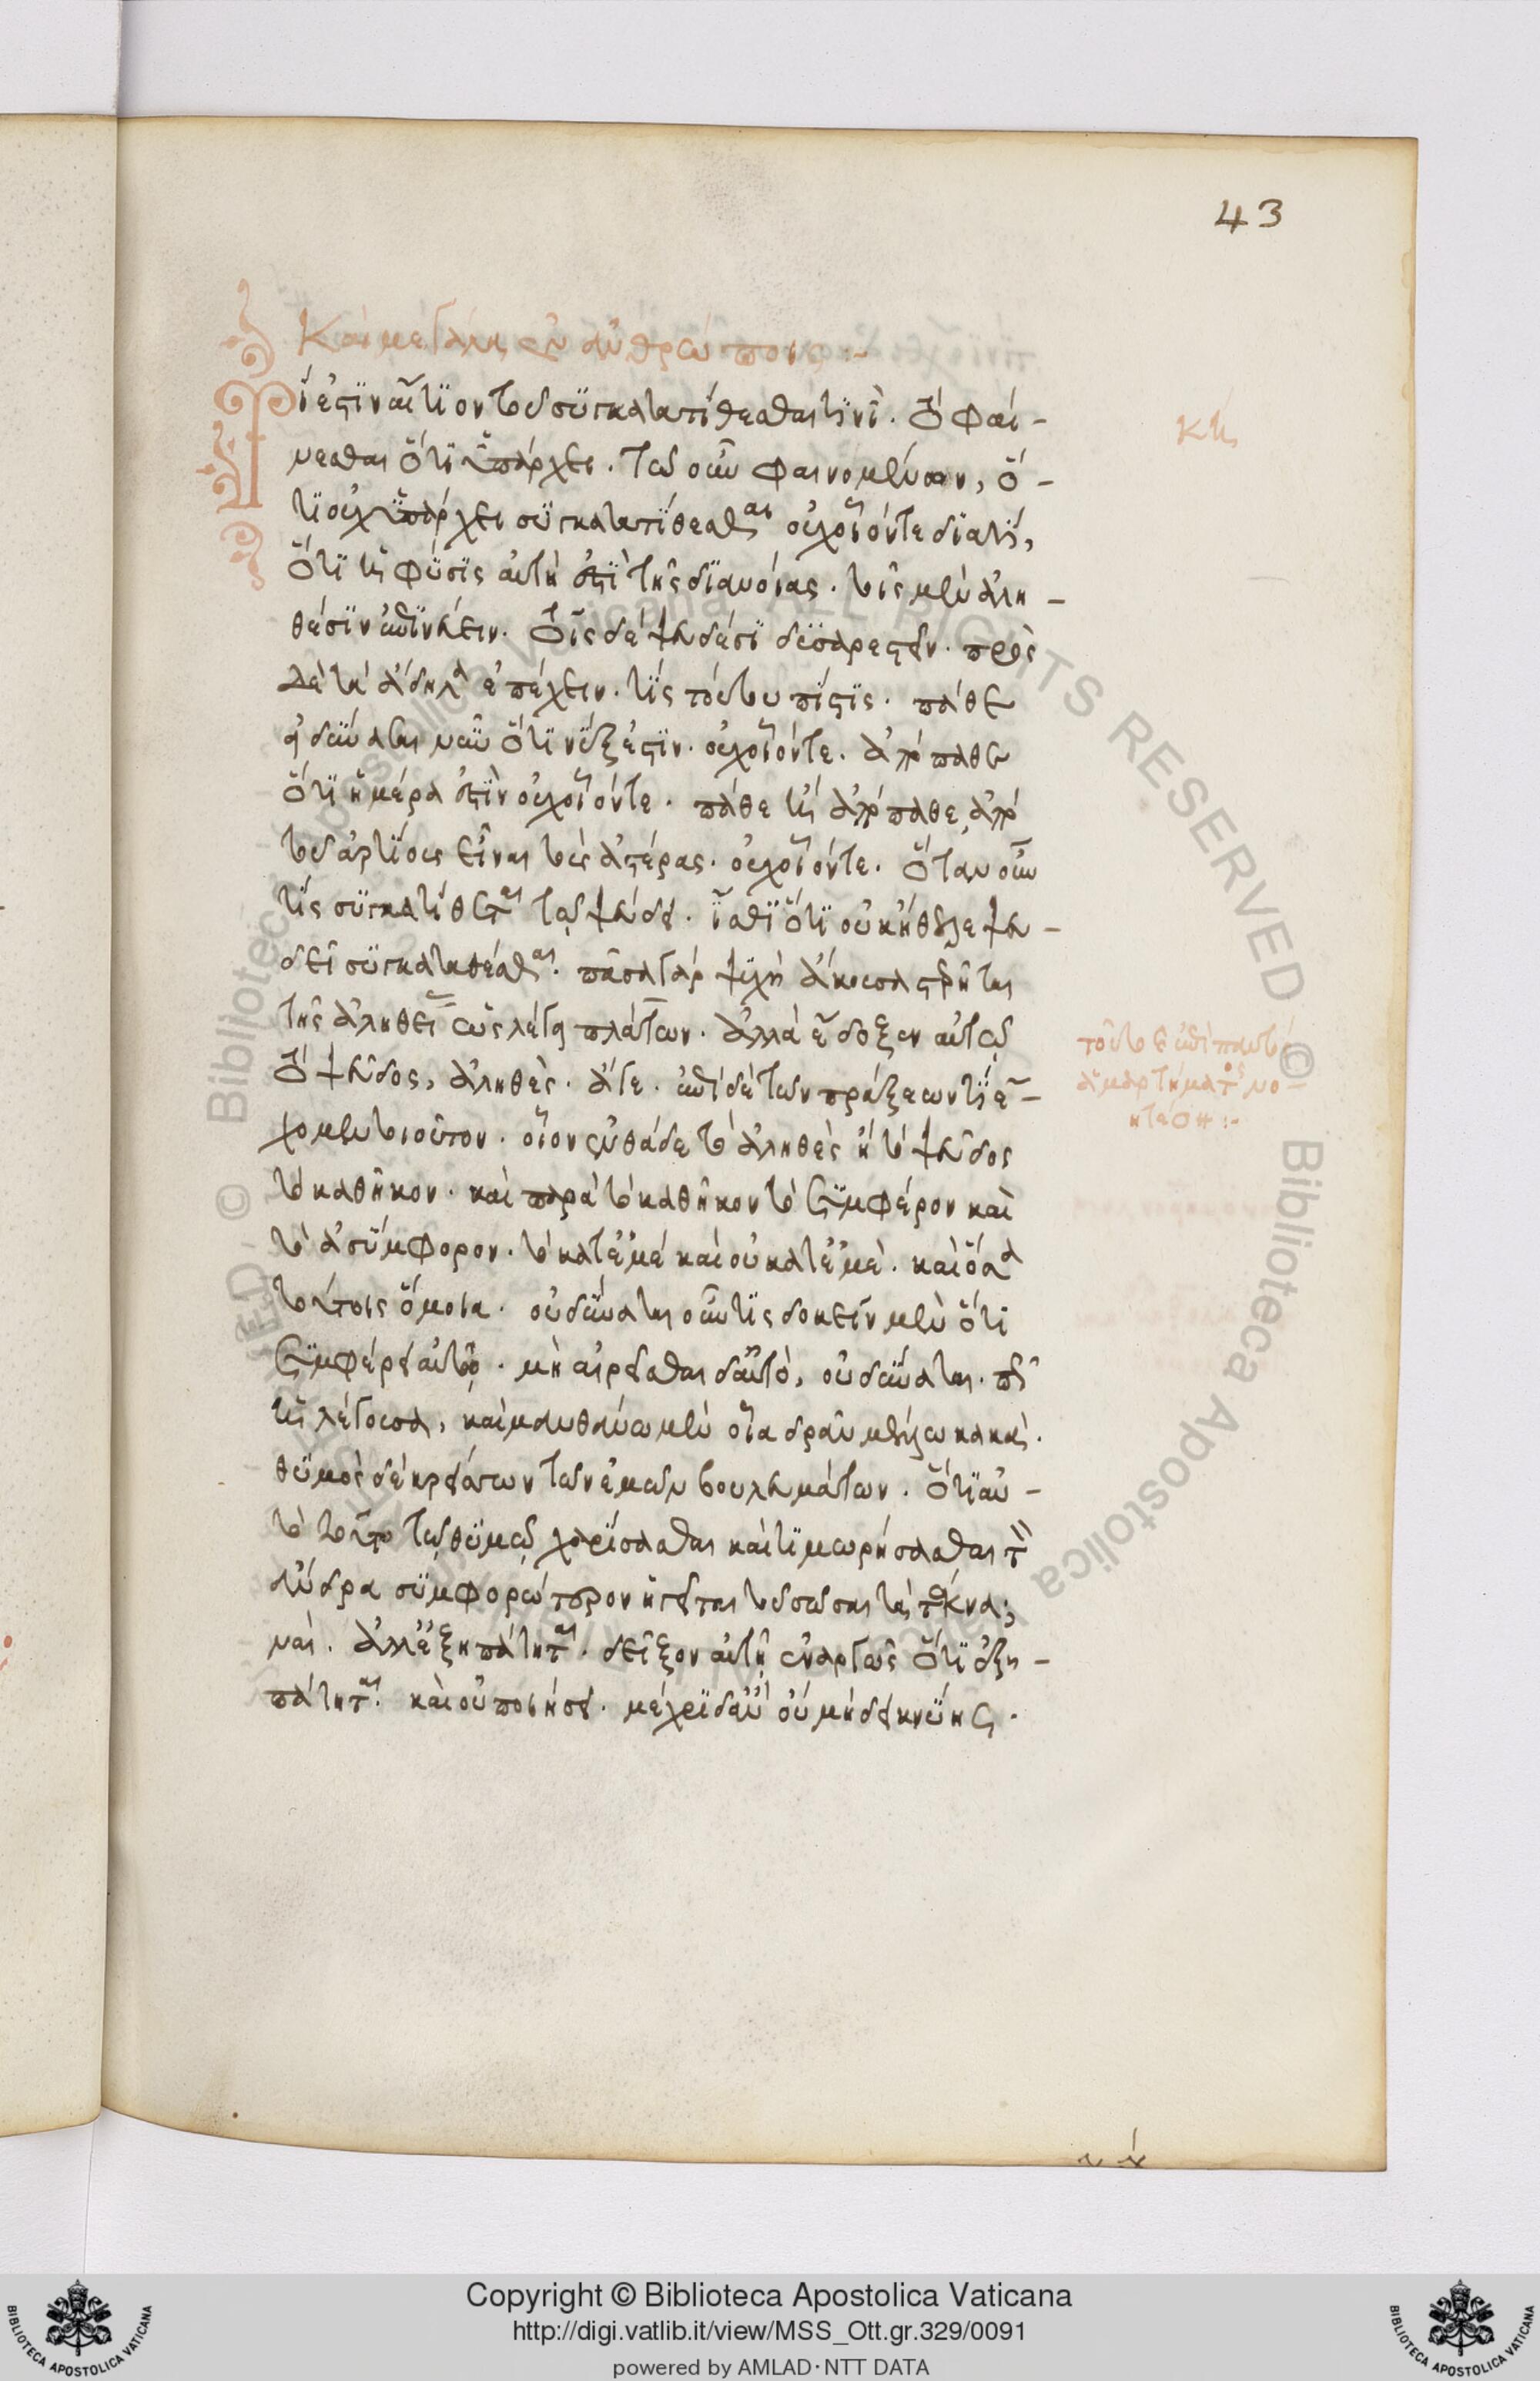 43
Καὶ μεγάλα ἐν ἀνθρώποις :-
Τί ἐστϊν αἴτϊον τοῦ συγκατατίθεσθαι τϊνί. Τὸ φαί-
νεσθαι ὅτϊ ὑπάρχει. τῶ οὖν φαινομένω, ὅ-
τϊ οὐχ ὑπάρχει συγκατατίθεσθαι οὐχ οἷόντε διατί,
ὅτϊ ἡ φύσϊς αὕτη ἐστὶ τῆς διανοίας. τοῖς μὲν ἀλη-
θέσϊν ἐπϊνεύειν. τοῖς δὲ ψευδέσϊ δυσαρεστεῖν. πρὸς
δὲ τὰ ἄδηλα ἐπέχειν. τίς τούτου πίστϊς. πάθε
εἰ δύναται νῦν ὅτϊ νύξ ἐστϊν. οὐχ οἷόντε. ἀπόπαθε
ὅτϊ ἡμέρα ἐστὶν οὐχ οἷόντε. πάθε ἢ ἀπόπαθε, ἀπὸ
τοῦ ἀρτίους εἶναι τοὺς ἀστέρας. οὐχ οἷόντε. ὅταν οὖν
τϊς συγκατίθεται τῶ ψεύδει. ἴσθϊ ὅτϊ οὐκ ἤθελε ψεύ-
δει συγκαταθέσθαι. πᾶσα γὰρ ψυχὴ ἄκουσα στερεῖται
τῆς ἀληθείας ὡς λέγει πλάτων. ἀλλὰ ἔδοξεν αὐτῶ
τὸ ψεῦδος, ἀληθές. ἄγε. ἐπὶ δὲ τῶν πράξεων τί ἔ-
χομεν τοιοῦτον. οἷον ἐνθάδε τὸ ἀληθὲς ἢ τὸ ψεῦδος
τὸ καθῆκον. καὶ παρὰ τὸ καθῆκον τὸ συμφέρον καὶ
τὸ ἀσύμφορον. τὸ κατ' ἐμέ καὶ οὐ κατ' ἐμέ. καὶ ὅσα
τούτοις ὅμοια. οὐ δύναται οὖν τϊς δοκεῖν μὲν ὅτϊ
συμφέρει αὐτῶ. μὴ αἱρεῖσθαι δ' αὐτό, οὐ δύναται. πῶς
ἡ λέγουσα, καὶ μανθάνω μὲν οἷα δρᾶν μέλλω κακά.
θυμὸς δὲ κρείσσων τῶν ἐμῶν βουλευμάτων. ὅτϊ αὐ-
τὸ τοῦτο τῶ θυμῶ χαρίσασθαι καὶ τϊμωρήσασθαι τὸν
ἄνδρα συμφορώτερον ἡγεῖται τοῦ σῶσαι τὰ τέκνα;
ναί. ἀλλ' ἐξηπάτηται. δεῖξον αὐτῆ ἐναργῶς ὅτϊ ἐξη-
πάτηται. καὶ οὐ ποιήσει. μέχρϊ δ' ἂν οὐ μὴ δεικνύης.
κη
τοῦτο ἐπὶ παντὸς
ἁμαρτήματος νο-
ητέον :-
Copyright © Biblioteca Apostolica Vaticana
http://digi.vatlib.it/view/MSS_Ott.gr.329/0091
powered by AMLAD·NTT DATA